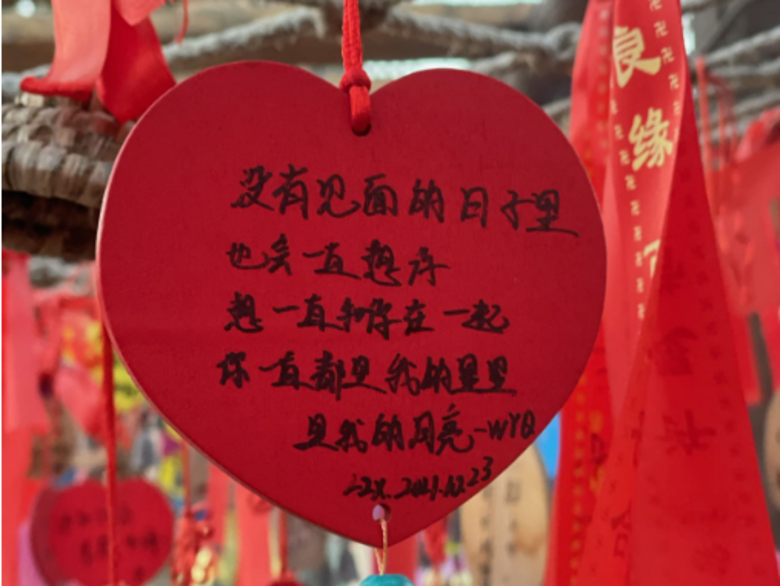 没有见面的日子里
也会一直想你
想一直和你在一起
你一直都是我的星星
是我的月亮-WYQ
2021.12.23
良缘